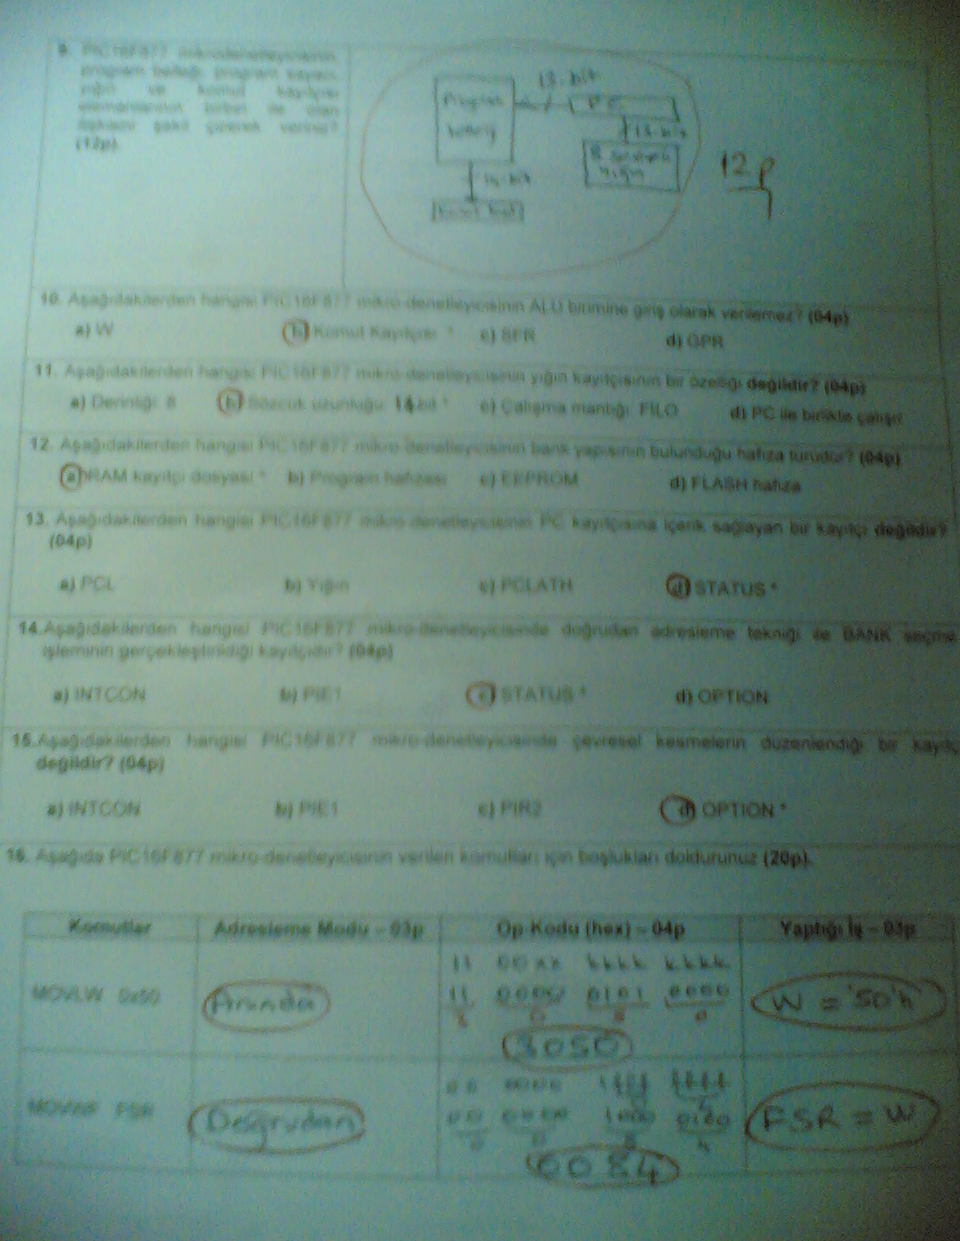 9. PIC16F877 mikrodenetleyicisinin
program belleği, program sayacı,
yığın ve komut kayıtçısı
elemanlarının birbiri ile olan
ilişkisini şekil çizerek veriniz?
(12p).
13-bit
Program
PC
13-bit
14-bit
12p
10. Aşağıdakilerden hangisi PIC16F877 mikro-denetleyicisinin ALU birimine giriş olarak verilemez? (04p)
a) W b) Komut Kayıtçısı * c) SFR d) GPR
11. Aşağıdakilerden hangisi PIC16F877 mikro-denetleyicisinin yığın kayıtçısının bir özelliği değildir? (04p)
a) Derinliği: 8 b) Sözcük uzunluğu: 14 bit * c) Çalışma mantığı: FILO d) PC ile birlikte çalışır
12. Aşağıdakilerden hangisi PIC16F877 mikro-denetleyicisinin bank yapısının bulunduğu hafıza türüdür? (04p)
a) RAM kayıtçı dosyası * b) Program hafızası c) EEPROM d) FLASH hafıza
13. Aşağıdakilerden hangisi PIC16F877 mikro-denetleyicisinin PC kayıtçısına içerik sağlayan bir kayıtçı değildir?
(04p)
a) PCL b) Yığın c) PCLATH d) STATUS *
14.Aşağıdakilerden hangisi PIC16F877 mikro-denetleyicisinde doğrudan adresleme tekniği ile BANK seçme
işleminin gerçekleştirildiği kayıtçıdır? (04p)
a) INTCON b) PIE1 c) STATUS * d) OPTION
15.Aşağıdakilerden hangisi PIC16F877 mikro-denetleyicisinde çevresel kesmelerin düzenlendiği bir kayıtç
değildir? (04p)
a) INTCON b) PIE1 c) PIR2 d) OPTION *
16. Aşağıda PIC16F877 mikro-denetleyicisinin verilen komutları için boşlukları doldurunuz (20p).
Komutlar Adresleme Modu – 03p Op-Kodu (hex) – 04p Yaptığı İş – 03p
11 00xx kkkk kkkk
MOVLW 0x50 Anında 11 0000 0101 0000 W = '50'h
3 0 5 0
3050
00 0000 1fff ffff
MOVWF FSR Doğrudan 00 0000 1000 0100 FSR = W
0 0 8 4
0084